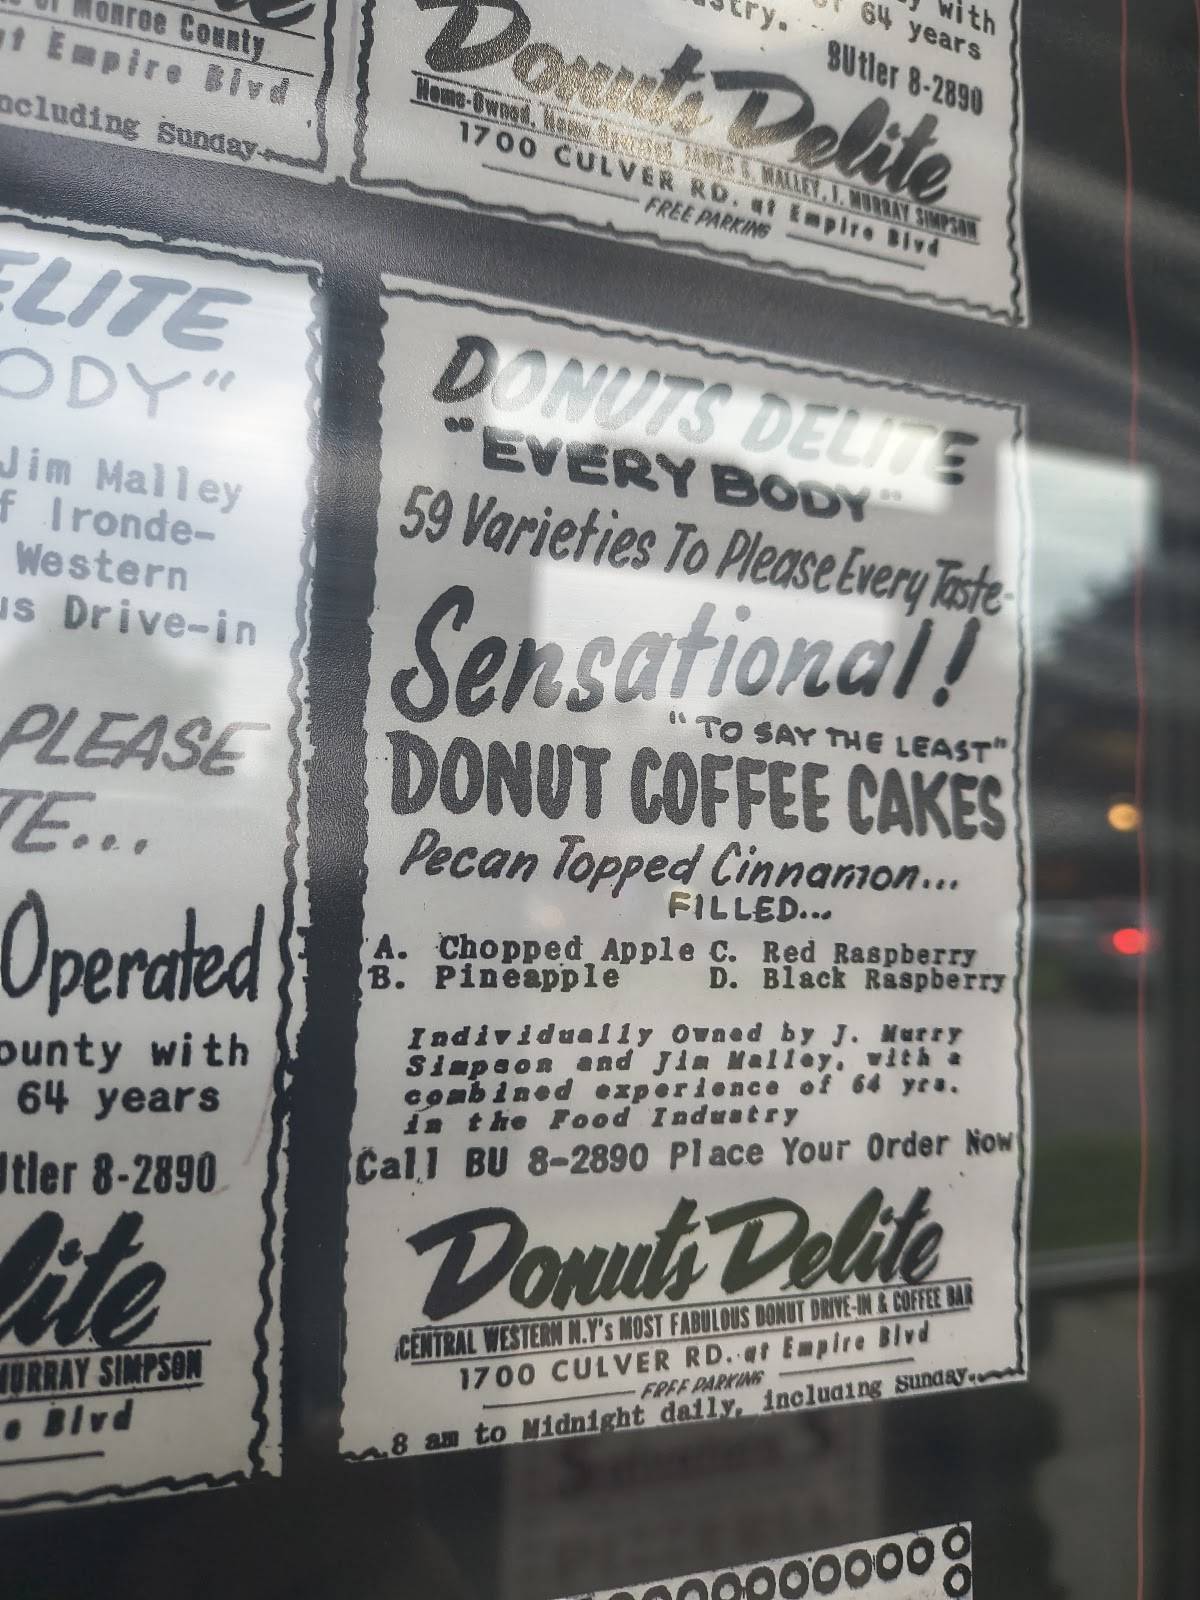 of Monroe County
at Empire Blvd
ncluding Sunday.
stry.
of 64 years
with
BUtler 8-2890
Donuts Delite
Home-Owned, Home Operated, JAMES E. MALLEY, J. MURRAY SIMPSON
1700 CULVER RD. at Empire Blvd
FREE PARKING
ELITE
ODY"
Jim Malley
f Ironde-
Western
us Drive-in
PLEASE
TE...
Operated
ounty with
64 years
Utler 8-2890
lite
MURRAY SIMPSON
e Blvd
DONUTS DELITE
"EVERY BODY"
59 Varieties To Please Every Taste-
Sensational!
"TO SAY THE LEAST"
DONUT COFFEE CAKES
Pecan Topped Cinnamon...
FILLED...
A. Chopped Apple C. Red Raspberry
B. Pineapple D. Black Raspberry
Individually Owned by J. Murry
Simpson and Jim Malley, with a
combined experience of 64 yrs.
in the Food Industry
Call BU 8-2890 Place Your Order Now
Donuts Delite
CENTRAL WESTERN N.Y's MOST FABULOUS DONUT DRIVE-IN & COFFEE BAR
1700 CULVER RD. at Empire Blvd
FREE PARKING
8 am to Midnight daily, including Sunday.